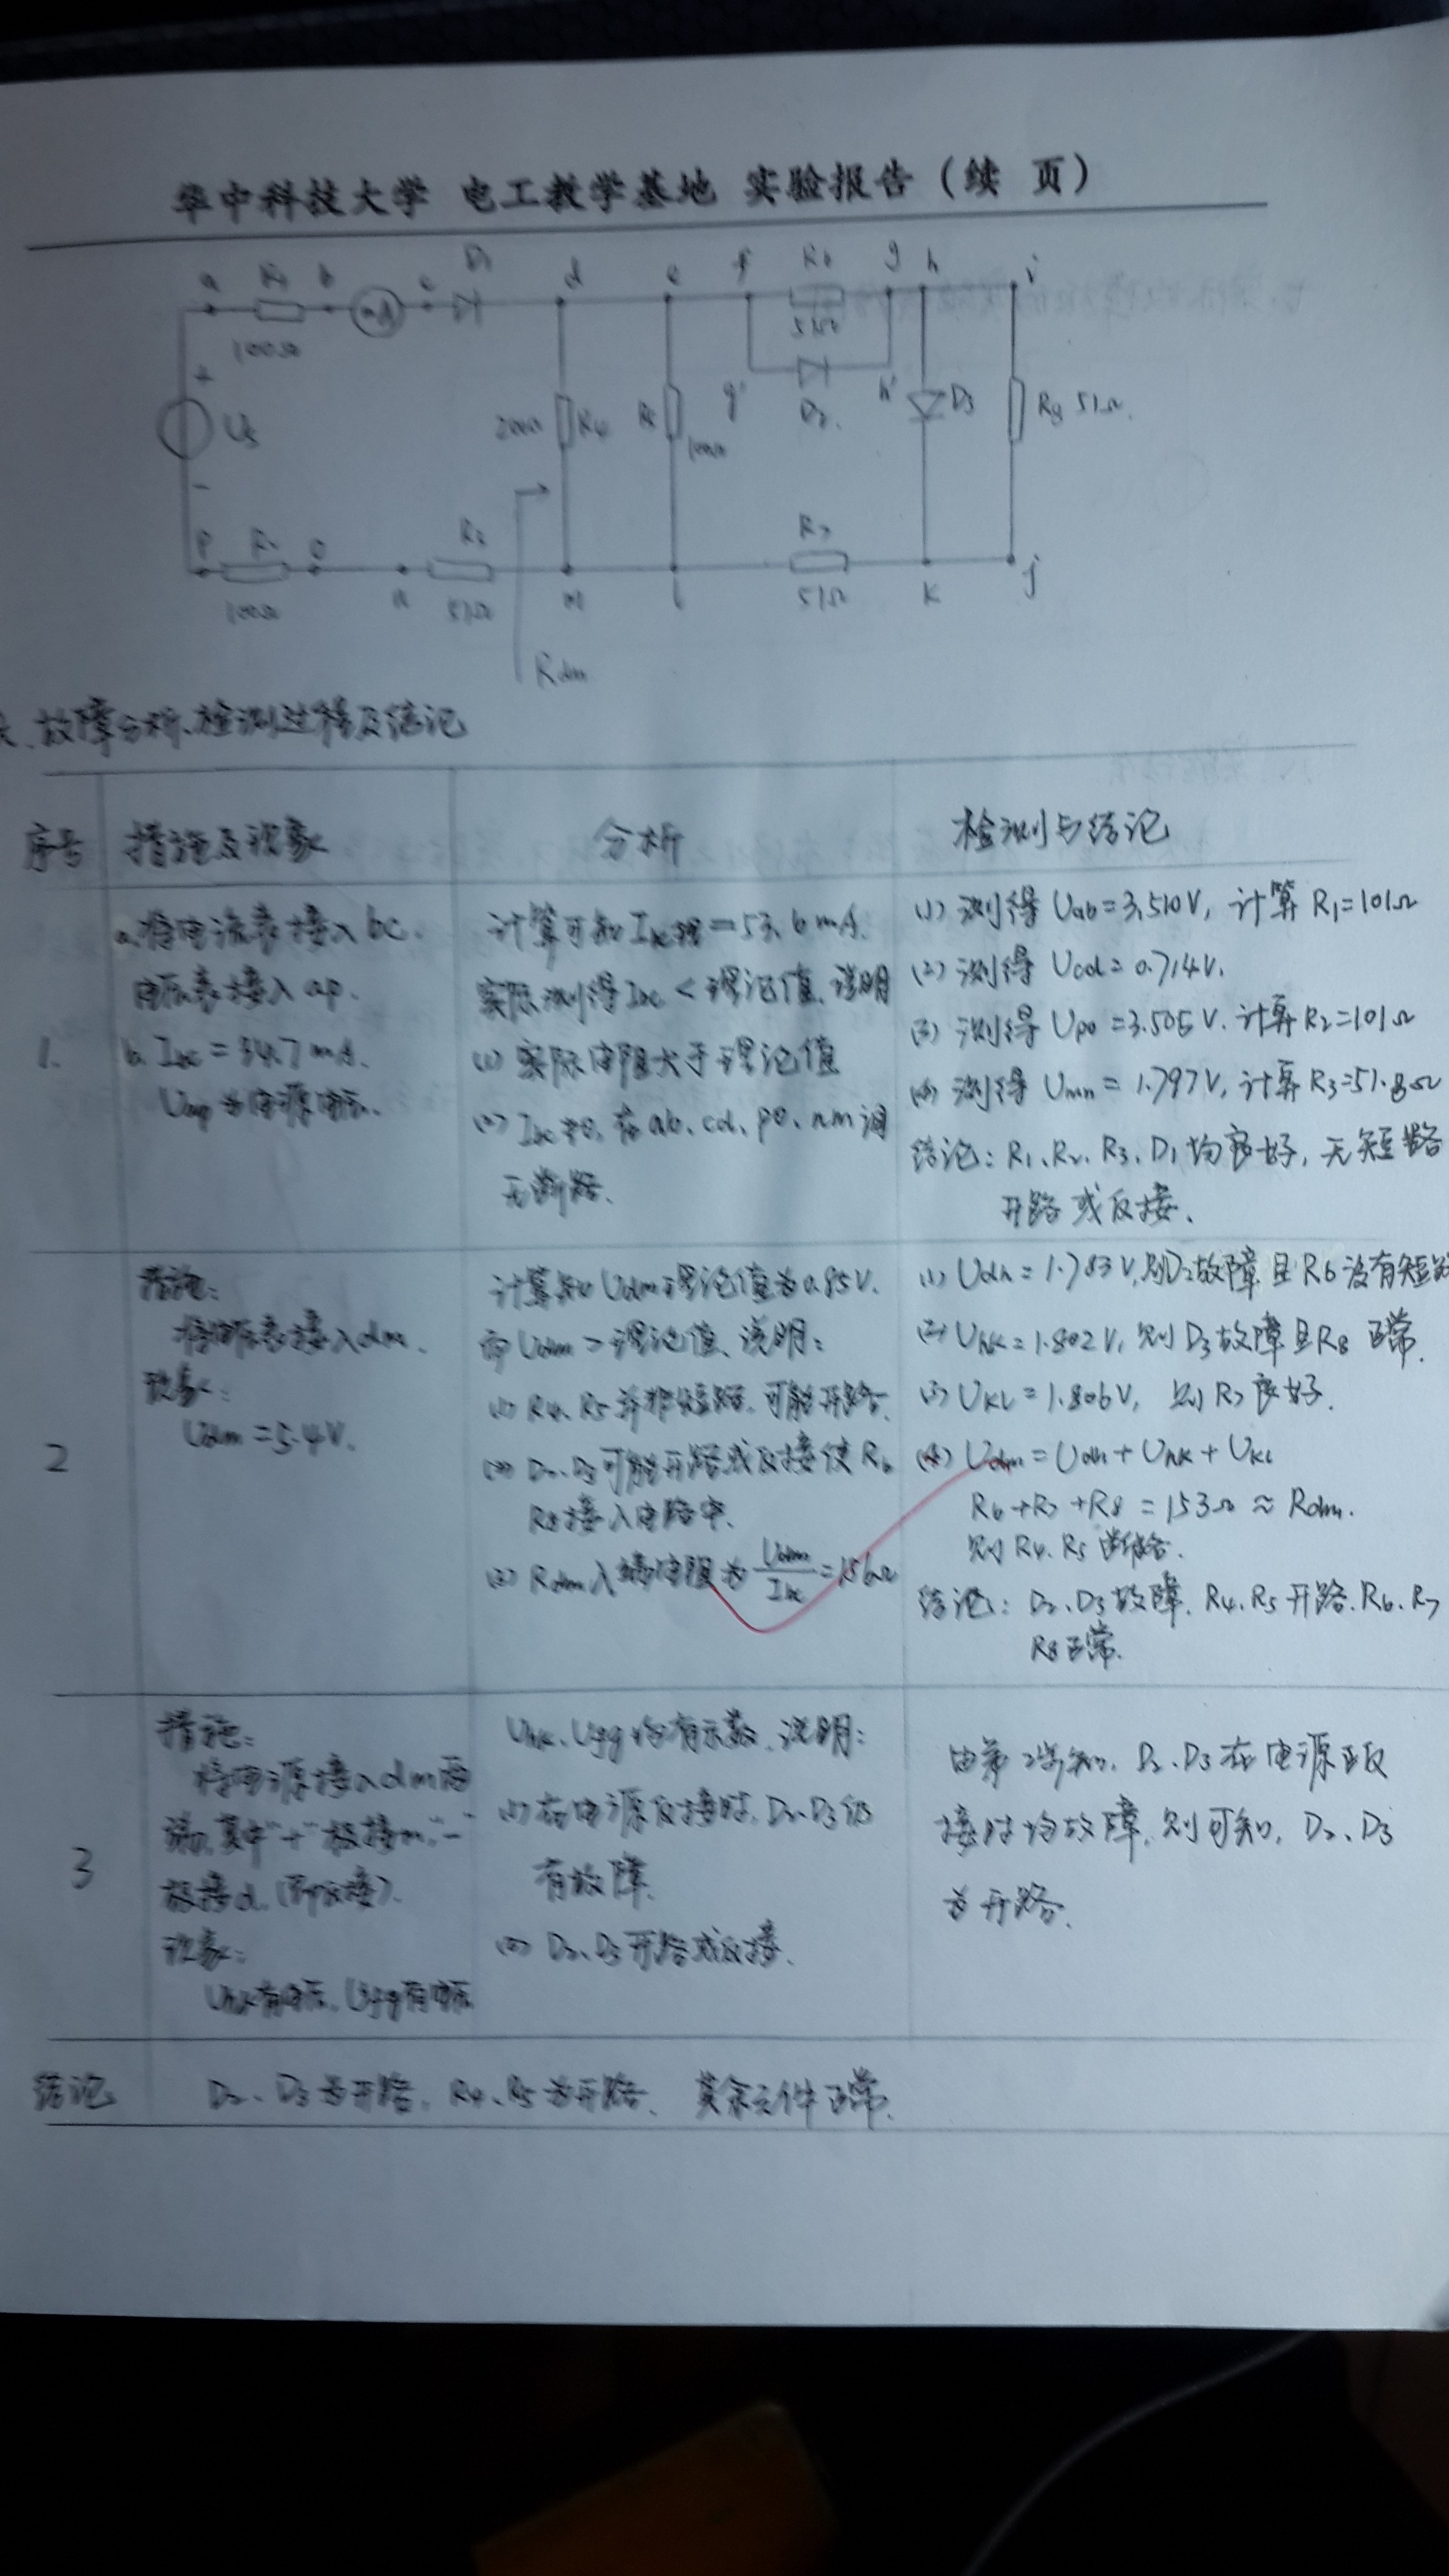 华中科技大学 电工教学基地 实验报告（续 页）
a R1 b c D1 d e f R6 g h i
mA
100Ω
51Ω
+
g' D2 h'
Us
200Ω R4 R5 100Ω
D3
R8 51Ω
-
p R2 o n R3 m l R7 k j
100Ω 51Ω 51Ω
Rdm
故障分析、检测过程及结论
序号 措施及现象 分析 检测与结论
1.
a. 将电流表接入bc.
电压表接入ap.
b. Ibc = 34.7mA.
Uap为电源电压.
计算可知Ibc理=53.6mA.
实际测得Ibc<理论值,说明
(1) 实际电阻大于理论值
(2) Ibc≠0,在ab、cd、po、nm间
无断路.
(1) 测得Uab=3.510V, 计算R1=101Ω
(2) 测得Ucd=0.714V.
(3) 测得Upo=3.505V. 计算R2=101Ω
(4) 测得Umn=1.797V, 计算R3=51.8Ω
结论: R1、R2、R3、D1均良好, 无短路
开路或反接.
2
措施:
将电压表接入dm.
现象:
Udm=5.4V.
计算知Udm理论值为0.85V.
而Udm>理论值、说明:
(1) R4、R5并非短路,可能开路.
(2) D2、D3可能开路或反接使R6
R8接入电路中.
(3) Rdm入端电阻为Udm/Ibc=156Ω
(1) Udh=1.783V,则D2故障且R6没有短路
(2) Uhk=1.802V, 则D3故障且R8正常.
(3) UKL=1.806V, 则R7良好.
(4) Udm=Udh+Uhk+UKL
R6+R7+R8=153Ω≈Rdm.
则R4、R5断路.
结论: D2、D3故障、R4、R5开路.R6、R7
R8正常.
3
措施:
将电源接入dm两
端,其中"+"极接m,"-"
极接d.(即反接).
现象:
Uhk有电压、Ufg有电压
Uhk、Ufg均有示数、说明:
(1) 在电源反接时,D2、D3仍
有故障.
(2) D2、D3开路或反接.
由第2步知, D2、D3在电源正反
接时均故障,则可知, D2、D3
为开路.
结论 D2、D3为开路, R4、R5为开路、其余元件正常.